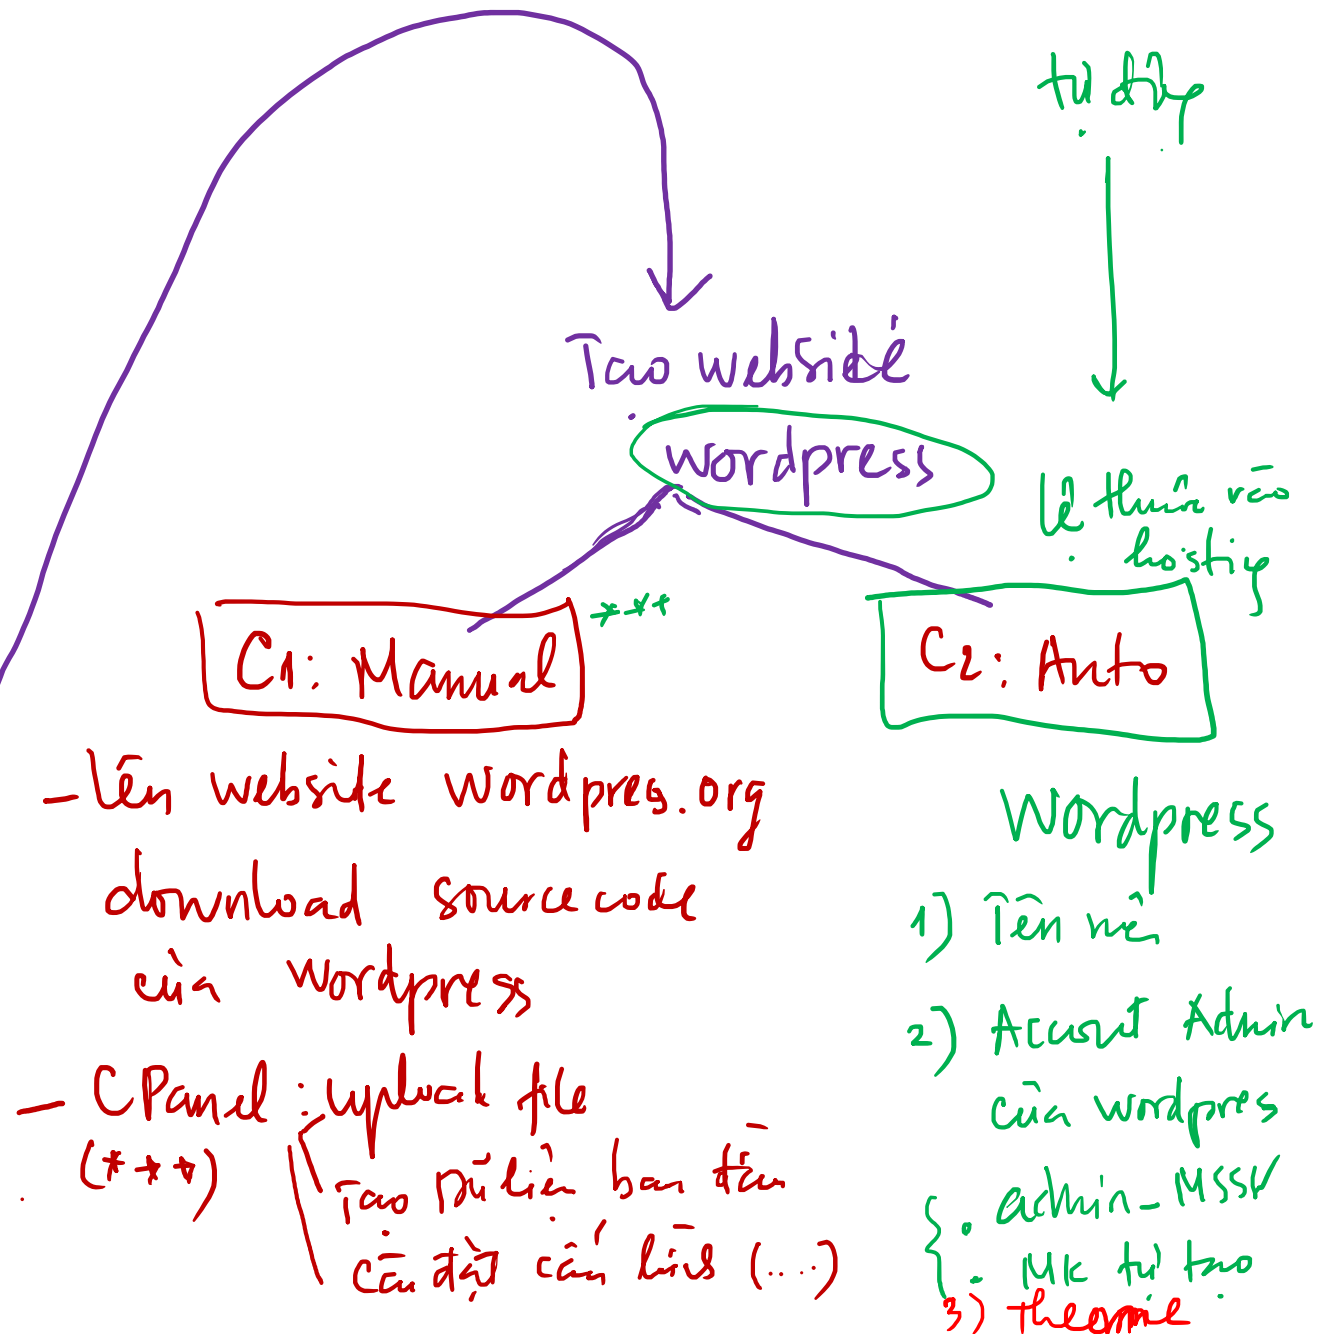 tự động
Tạo website
wordpress
lệ thuộc vào
hosting
***
C1: Manual
C2: Auto
- lên website wordpres.org
download source code
của wordpress
- CPanel : upload file
(***)
Tạo Dữ liệu ban đầu
cài đặt cấu hình (....)
Wordpress
1) Tên miền
2) Account Admin
của wordpres
. admin_MSSV
. MK tự tạo
3) theme